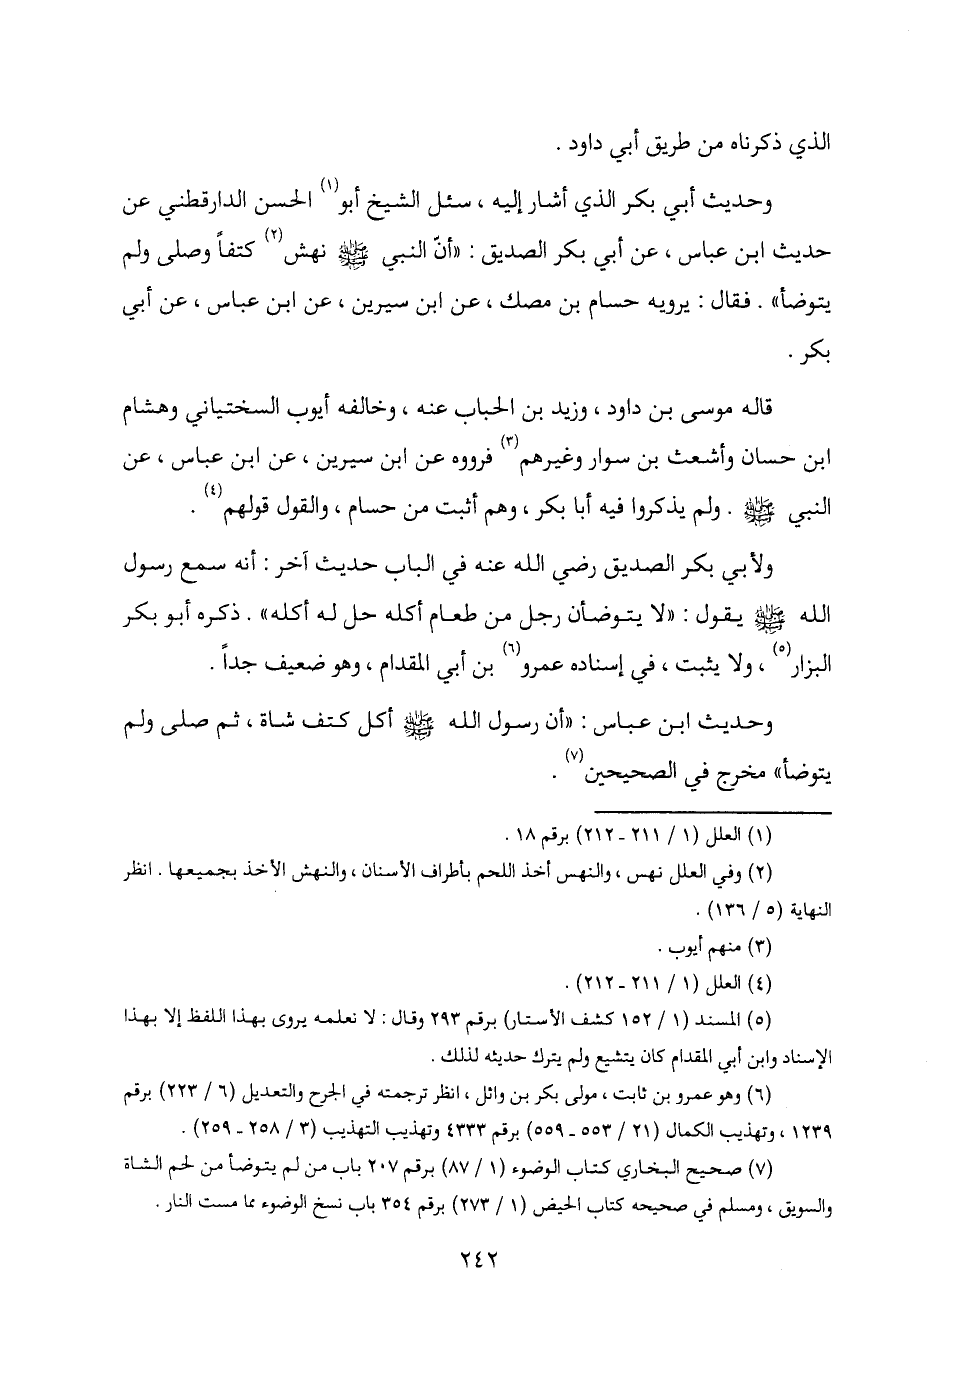 الذي ذكرناه من طريق أبي داود .
وحديث أبي بكر الذي أشار إليه ، سئل الشيخ أبو(١) الحسن الدارقطني عن
حديث ابن عباس ، عن أبي بكر الصديق : «أنّ النبي ﷺ نهش(٢) كتفاً وصلى ولم
يتوضأ» . فقال : يرويه حسام بن مصك ، عن ابن سيرين ، عن ابن عباس ، عن أبي
بكر .
قاله موسى بن داود ، وزيد بن الحباب عنه ، وخالفه أيوب السختياني وهشام
ابن حسان وأشعث بن سوار وغيرهم(٣) فرووه عن ابن سيرين ، عن ابن عباس ، عن
النبي ﷺ . ولم يذكروا فيه أبا بكر ، وهم أثبت من حسام ، والقول قولهم(٤) .
ولأبي بكر الصديق رضي الله عنه في الباب حديث آخر : أنه سمع رسول
الله ﷺ يقول : «لا يتوضأن رجل من طعام أكله حل له أكله» . ذكره أبو بكر
البزار(٥) ، ولا يثبت ، في إسناده عمرو(٦) بن أبي المقدام ، وهو ضعيف جداً .
وحديث ابن عباس : «أن رسول الله ﷺ أكل كتف شاة ، ثم صلى ولم
يتوضأ» مخرج في الصحيحين(٧) .
(١) العلل (١ / ٢١١ ـ ٢١٢) برقم ١٨ .
(٢) وفي العلل نهس ، والنهس أخذ اللحم بأطراف الأسنان ، والنهش الأخذ بجميعها . انظر
النهاية (٥ / ١٣٦) .
(٣) منهم أيوب .
(٤) العلل (١ / ٢١١ ـ ٢١٢) .
(٥) المسند (١ / ١٥٢ كشف الأستار) برقم ٢٩٣ وقال : لا نعلمه يروى بهذا اللفظ إلا بهذا
الإسناد وابن أبي المقدام كان يتشيع ولم يترك حديثه لذلك .
(٦) وهو عمرو بن ثابت ، مولى بكر بن وائل ، انظر ترجمته في الجرح والتعديل (٦ / ٢٢٣) برقم
١٢٣٩ ، وتهذيب الكمال (٢١ / ٥٥٣ ـ ٥٥٩) برقم ٤٣٣٣ وتهذيب التهذيب (٣ / ٢٥٨ ـ ٢٥٩) .
(٧) صحيح البخاري كتاب الوضوء (١ / ٨٧) برقم ٢٠٧ باب من لم يتوضأ من لحم الشاة
والسويق ، ومسلم في صحيحه كتاب الحيض (١ / ٢٧٣) برقم ٣٥٤ باب نسخ الوضوء مما مست النار .
٢٤٢